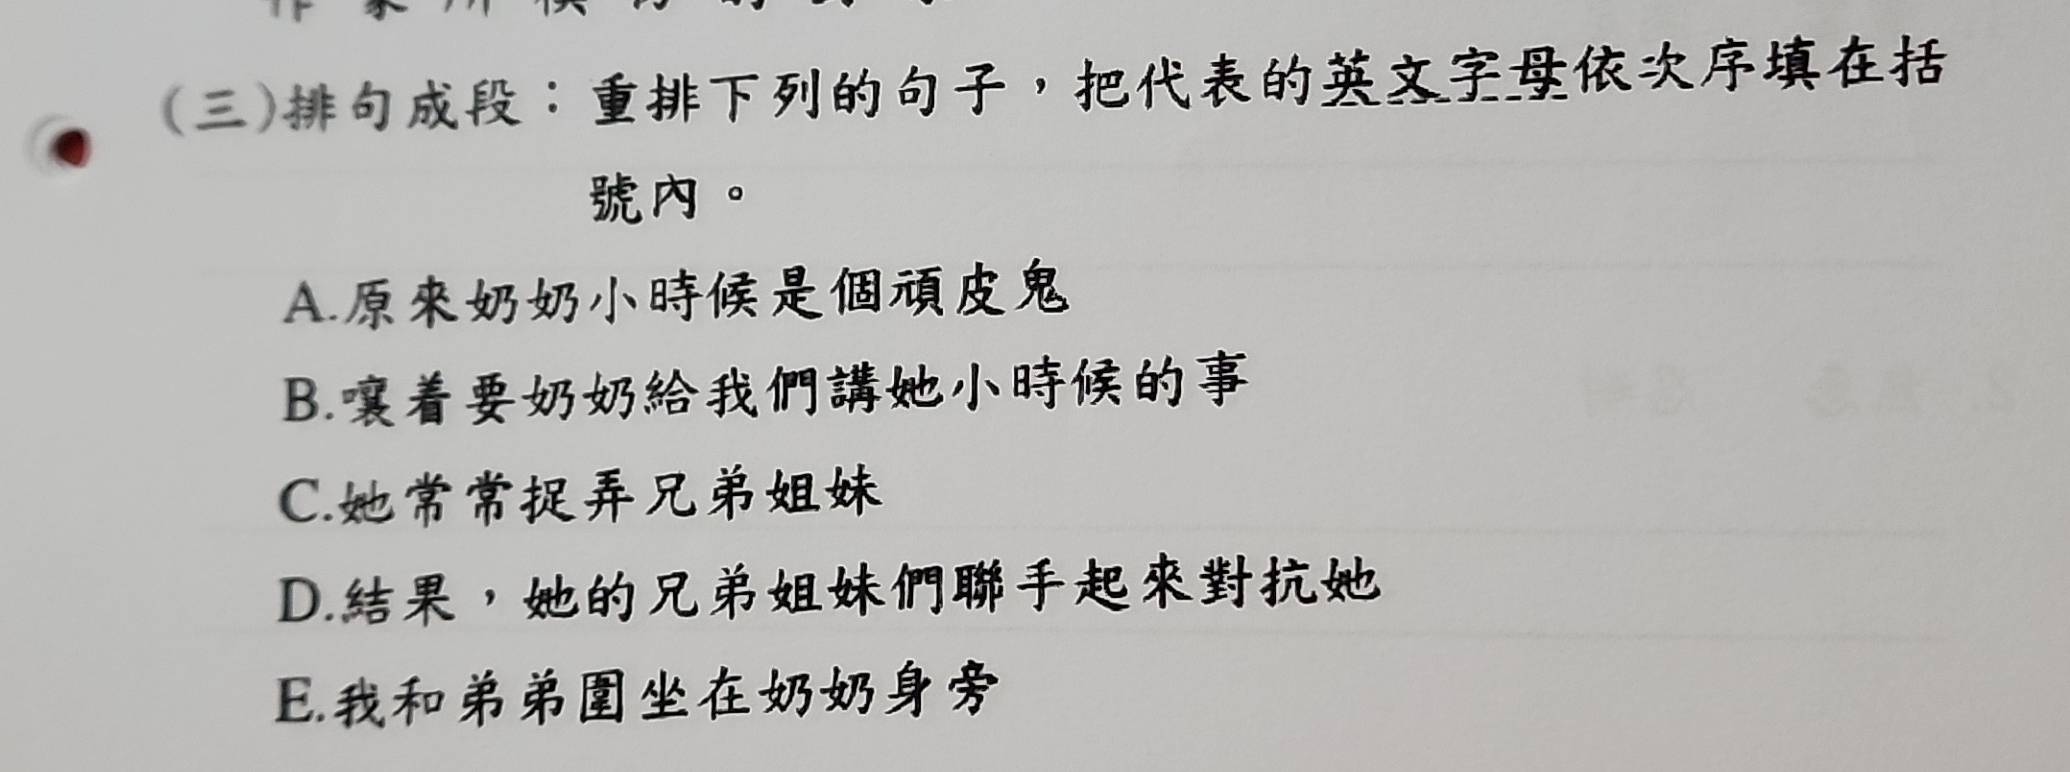 (三)排句成段：重排下列的句子，把代表的英文字母依次序填在括
號內。
A.原來奶奶小時候是個頑皮鬼
B.嚷着要奶奶給我們講她小時候的事
C.她常常捉弄兄弟姐妹
D.結果，她的兄弟姐妹們聯手起來對抗她
E.我和弟弟圍坐在奶奶身旁